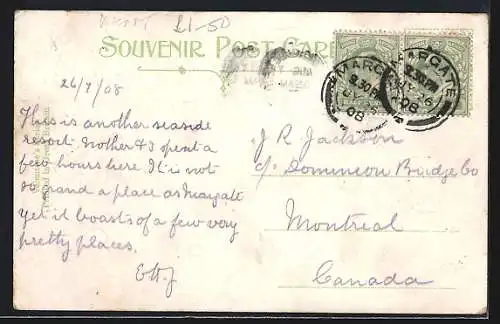 KENT £1-50
SOUVENIR POST CARD
26/7/08
This is another seaside
resort. Mother & I spent a
few hours here. It is not
so grand a place as Margate
yet it boasts of a few very
pretty places.
MARGATE
9.30 PM
JY 26
08
MARGATE
9.30 PM
JY 26
08
J R Jackson
c/o Dominion Bridge Co
Montreal
Canada